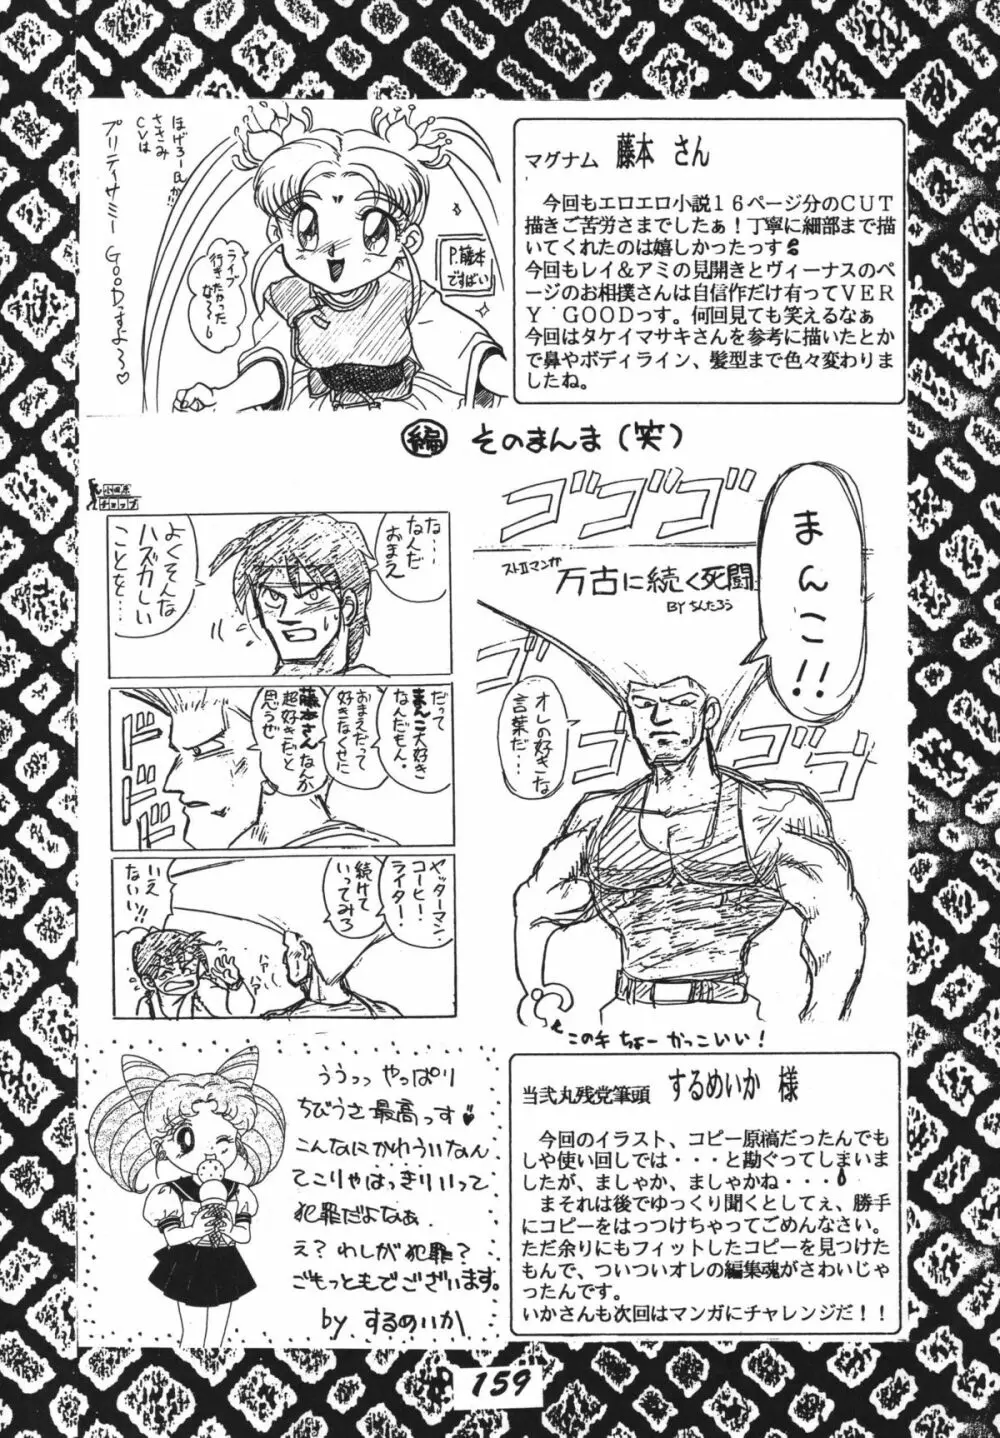 ほげろーPか
さきみ
CVは
プリティサミー GOODっすよ〜♡
ライブ
行きたかった
な〜〜
P.藤本
ですばい
マグナム 藤本 さん
今回もエロエロ小説16ページ分のCUT
描きご苦労さまでしたぁ!丁寧に細部まで描
いてくれたのは嬉しかったっす
今回もレイ&アミの見開きとヴィーナスのペ
ージのお相撲さんは自信作だけ有ってVER
Y GOODっす。何回見ても笑えるなぁ
今回はタケイマサキさんを参考に描いたとか
で鼻やボディライン、髪型まで色々変わりま
したね。
編 そのまんま(笑)
小田原
チョップ
な…
なんだ
おまえ
よくそんな
ハズカしい
ことを…
だって
まんこ大好き
なんだもん。
おまえだって
好きなくせに
藤本さんなんか
超好きだと
思うぜ
ドドド
ヤッターマン
コーヒー!
ライター!
続けて
いってみろ
いえ
ないい!!
ハァハァ
ゴゴゴ
まんこ!!
ストⅡマンガ
万古に続く死闘
BY ちんたろう
オレの好きな
言葉だ…
ゴゴ
ゴゴ
この手 ちょーかっこいい!
ううっっ やっぱり
ちびうさ最高っす♥
こんなにかわういなん
てこりゃはっきりいって
犯罪だよなぁ
え?わしが犯罪?
ごもっともでございます。
by するめいか
当弐丸残党筆頭 するめいか 様
今回のイラスト、コピー原稿だったんでも
しや使い回しでは・・・と勘ぐってしまいま
したが、ましゃか、ましゃかね・・・
まそれは後でゆっくり聞くとしてぇ、勝手
にコピーをはっつけちゃってごめんなさい。
ただ余りにもフィットしたコピーを見つけた
もんで、ついついオレの編集魂がさわいじゃ
ったんです。
いかさんも次回はマンガにチャレンジだ!!
159